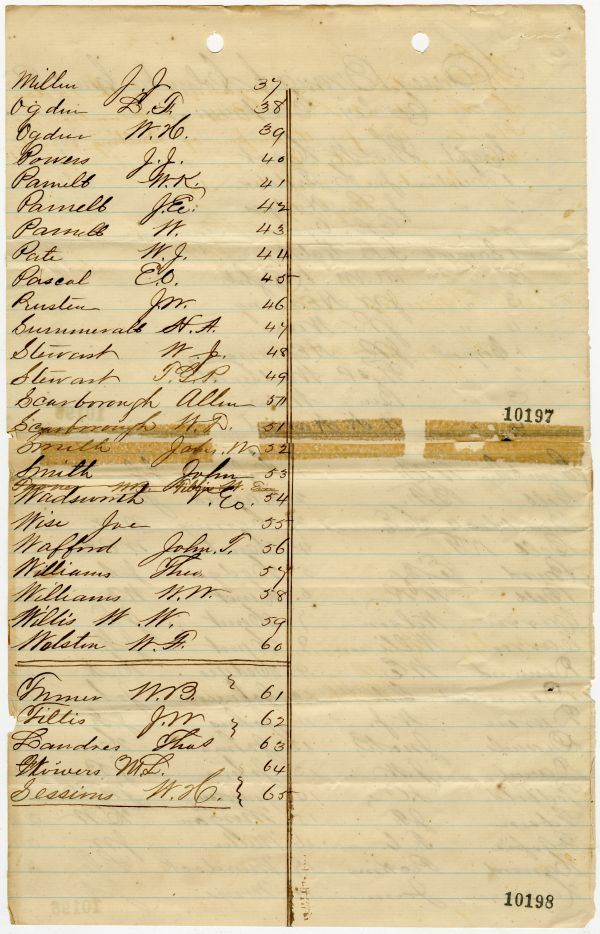 Miller J. J. 37
Ogden B. F. 38
Ogden W. H. 39
Powers J. J. 40
Parnell W. K. 41
Parnell J. E. 42
Parnell W. 43
Pate W. J. 44
Pascal E. O. 45
J. W. 46
Summerall H. A. 47
Stewart W. J. 48
Stewart T. G. P. 49
Scarborough Allen 50
10197
Scarborough W. D. 51
Smith John. W. 52
Smith John 53
Wadsworth Eo. 54
Wise Joe 55
Wafford John. T. 56
Williams Theo 57
Williams W. W. 58
Willis W. W. 59
Wolsten W. F. 60
Turner W. B. 61
Tillis J. W 62
Landres Thos 63
M. L. 64
Sessions W. H. 65
10198